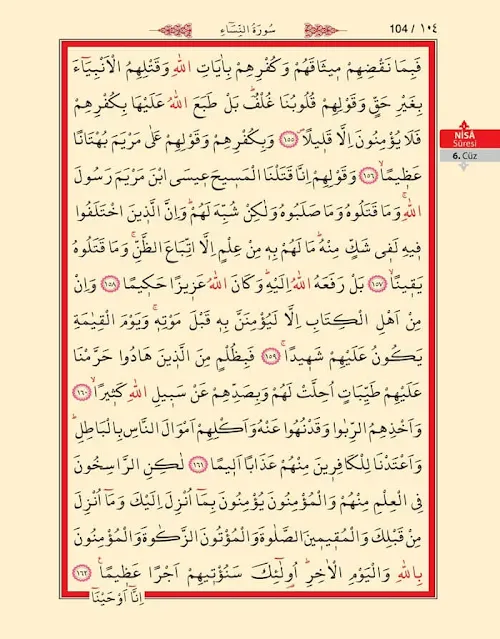 104 / ١٠٤
سُورَةُ النِّسَٓاءِ
فَبِمَا نَقْضِهِمْ مٖيثَاقَهُمْ وَكُفْرِهِمْ بِاٰيَاتِ اللّٰهِ وَقَتْلِهِمُ الْاَنْبِيَٓاءَ
بِغَيْرِ حَقٍّ وَقَوْلِهِمْ قُلُوبُنَا غُلْفٌؕ بَلْ طَبَعَ اللّٰهُ عَلَيْهَا بِكُفْرِهِمْ
فَلَا يُؤْمِنُونَ اِلَّا قَلٖيلًاۖ ﴿١٥٥﴾ وَبِكُفْرِهِمْ وَقَوْلِهِمْ عَلٰى مَرْيَمَ بُهْتَانًا
عَظٖيمًاۙ ﴿١٥٦﴾ وَقَوْلِهِمْ اِنَّا قَتَلْنَا الْمَسٖيحَ عٖيسَى ابْنَ مَرْيَمَ رَسُولَ
اللّٰهِۚ وَمَا قَتَلُوهُ وَمَا صَلَبُوهُ وَلٰكِنْ شُبِّهَ لَهُمْؕ وَاِنَّ الَّذٖينَ اخْتَلَفُوا
فٖيهِ لَفٖى شَكٍّ مِنْهُؕ مَا لَهُمْ بِهٖ مِنْ عِلْمٍ اِلَّا اتِّبَاعَ الظَّنِّۚ وَمَا قَتَلُوهُ
يَقٖينًاۙ ﴿١٥٧﴾ بَلْ رَفَعَهُ اللّٰهُ اِلَيْهِؕ وَكَانَ اللّٰهُ عَزٖيزًا حَكٖيمًا ﴿١٥٨﴾ وَاِنْ
مِنْ اَهْلِ الْكِتَابِ اِلَّا لَيُؤْمِنَنَّ بِهٖ قَبْلَ مَوْتِهٖۚ وَيَوْمَ الْقِيٰمَةِ
يَكُونُ عَلَيْهِمْ شَهٖيدًاۚ ﴿١٥٩﴾ فَبِظُلْمٍ مِنَ الَّذٖينَ هَادُوا حَرَّمْنَا
عَلَيْهِمْ طَيِّبَاتٍ اُحِلَّتْ لَهُمْ وَبِصَدِّهِمْ عَنْ سَبٖيلِ اللّٰهِ كَثٖيرًاۙ ﴿١٦٠﴾
وَاَخْذِهِمُ الرِّبٰوا وَقَدْ نُهُوا عَنْهُ وَاَكْلِهِمْ اَمْوَالَ النَّاسِ بِالْبَاطِلِؕ
وَاَعْتَدْنَا لِلْكَافِرٖينَ مِنْهُمْ عَذَابًا اَلٖيمًا ﴿١٦١﴾ لٰكِنِ الرَّاسِخُونَ
فِى الْعِلْمِ مِنْهُمْ وَالْمُؤْمِنُونَ يُؤْمِنُونَ بِمَٓا اُنْزِلَ اِلَيْكَ وَمَٓا اُنْزِلَ
مِنْ قَبْلِكَ وَالْمُقٖيمٖينَ الصَّلٰوةَ وَالْمُؤْتُونَ الزَّكٰوةَ وَالْمُؤْمِنُونَ
بِاللّٰهِ وَالْيَوْمِ الْاٰخِرِؕ اُولٰٓئِكَ سَنُؤْتٖيهِمْ اَجْرًا عَظٖيمًاۚ ﴿١٦٢﴾
اِنَّٓا اَوْحَيْنَٓا
NİSÂ
Sûresi
6. Cüz